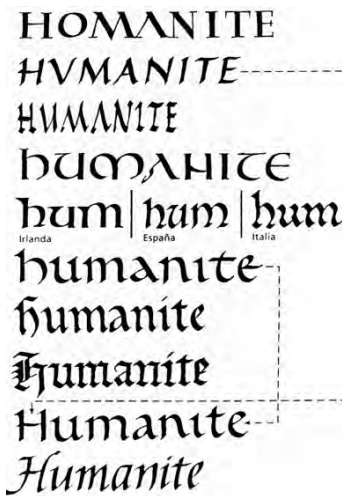 HOMANITE
HVMANITE
HUMANITE
humanite
hum hum hum
Irlanda España Italia
humanite
humanite
Humanite
Humanite
Humanite